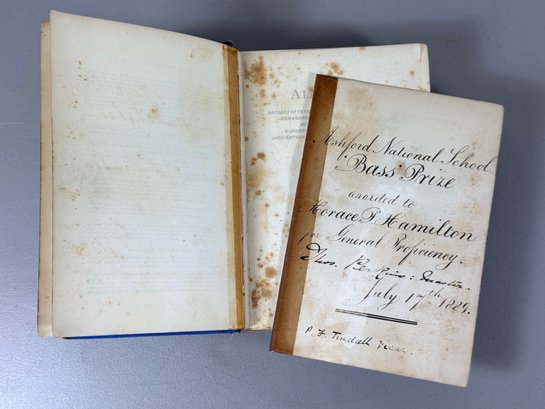 Al
RECORDS OF
REMARKAB
WONDER
INCIDENTS
Ashford National School
"Bass" Prize
awarded to
Horace T. Hamilton
for General Proficiency.
Thos. Perkins: Master.
July 17th 1889.
P. F. Tindall Vicar.